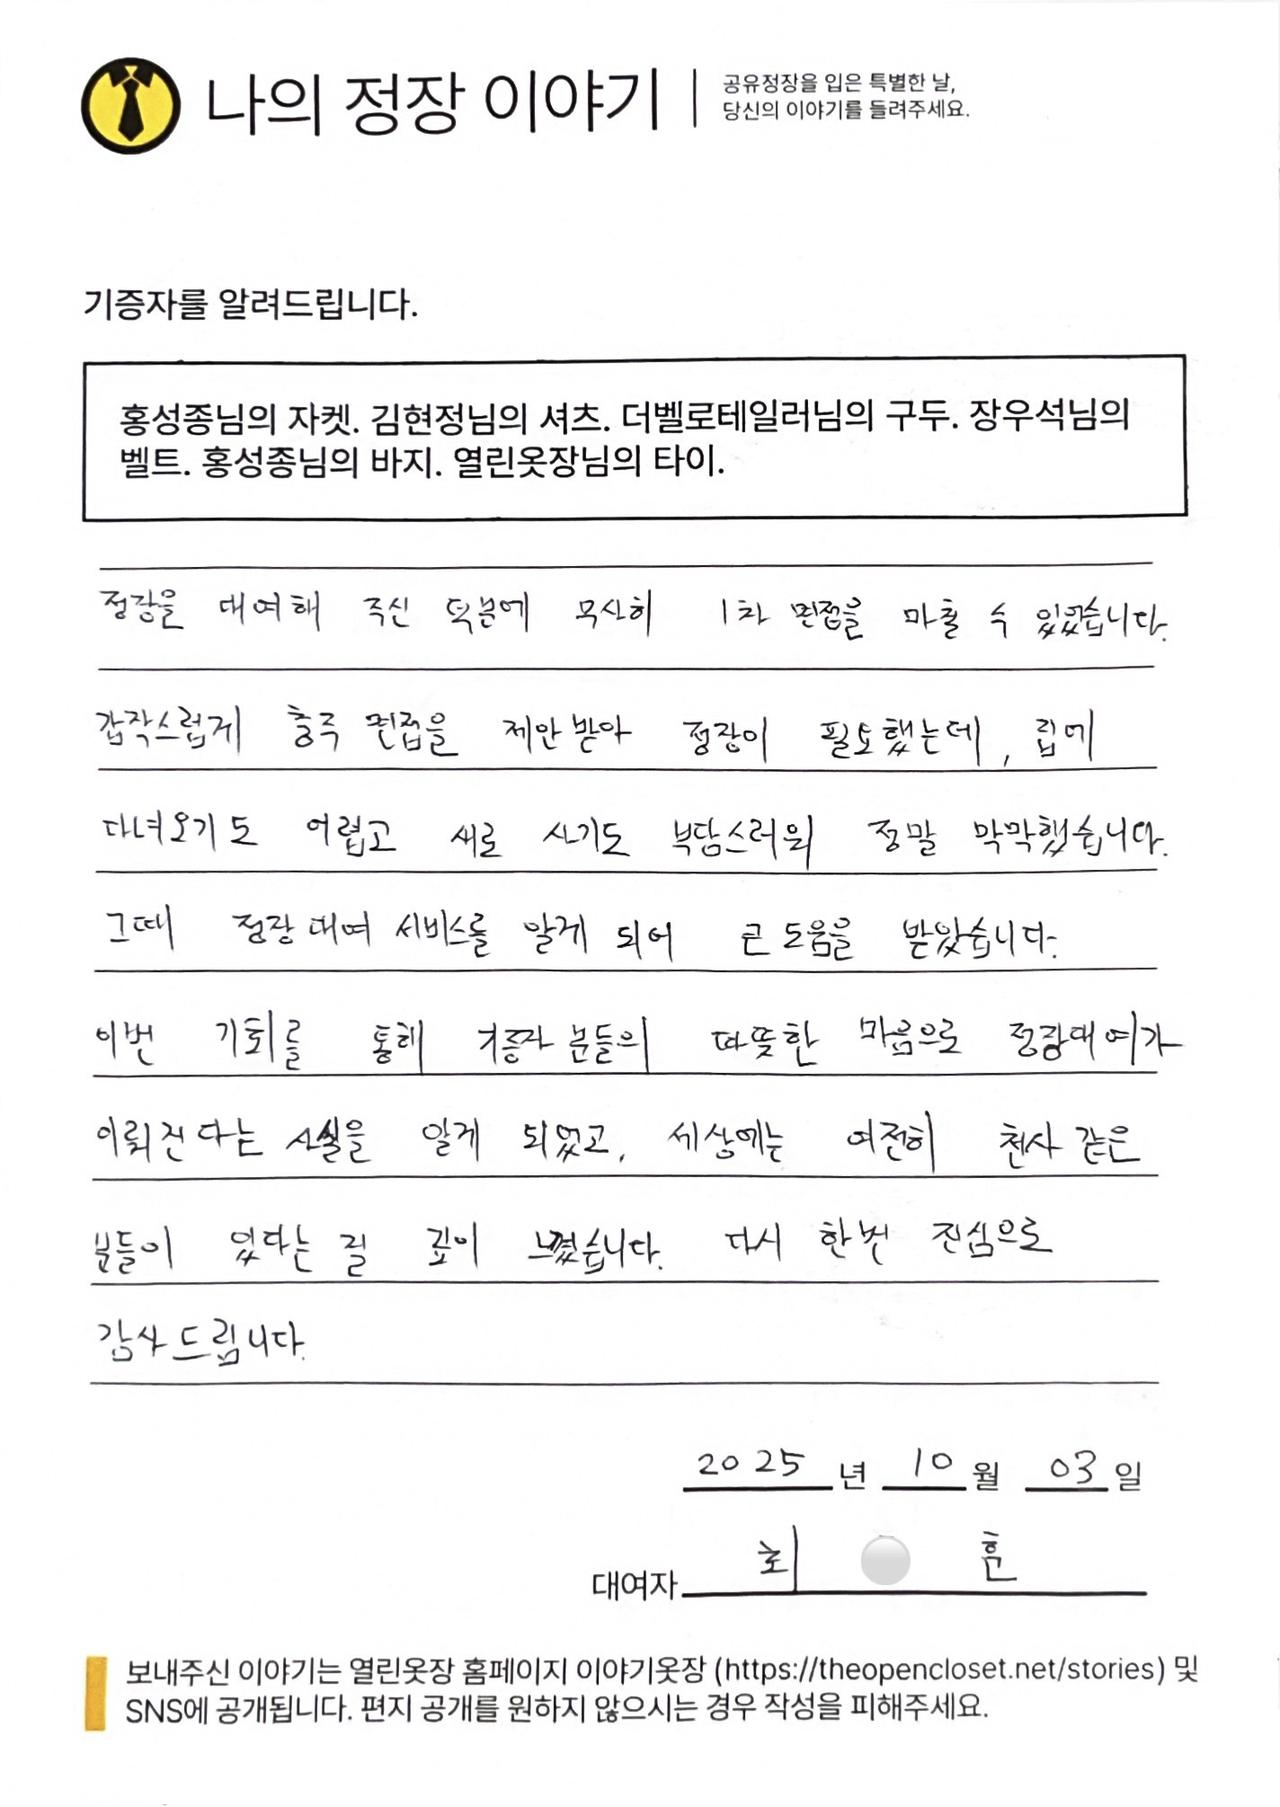 나의 정장 이야기
공유정장을 입은 특별한 날,
당신의 이야기를 들려주세요.
기증자를 알려드립니다.
홍성종님의 자켓. 김현정님의 셔츠. 더벨로테일러님의 구두. 장우석님의
벨트. 홍성종님의 바지. 열린옷장님의 타이.
정장을 대여해 주신 덕분에 무사히 1차 면접을 마칠 수 있었습니다.
갑작스럽게 충주 면접을 제안받아 정장이 필요했는데, 집에
다녀오기도 어렵고 새로 사기도 부담스러워 정말 막막했습니다.
그때 정장 대여 서비스를 알게 되어 큰 도움을 받았습니다.
이번 기회를 통해 기증자 분들의 따뜻한 마음으로 정장대여가
이뤄진다는 사실을 알게 되었고, 세상에는 여전히 천사 같은
분들이 있다는 걸 깊이 느꼈습니다. 다시 한번 진심으로
감사드립니다.
2025년 10월 03일
대여자 최 훈
보내주신 이야기는 열린옷장 홈페이지 이야기옷장 (https://theopencloset.net/stories) 및
SNS에 공개됩니다. 편지 공개를 원하지 않으시는 경우 작성을 피해주세요.